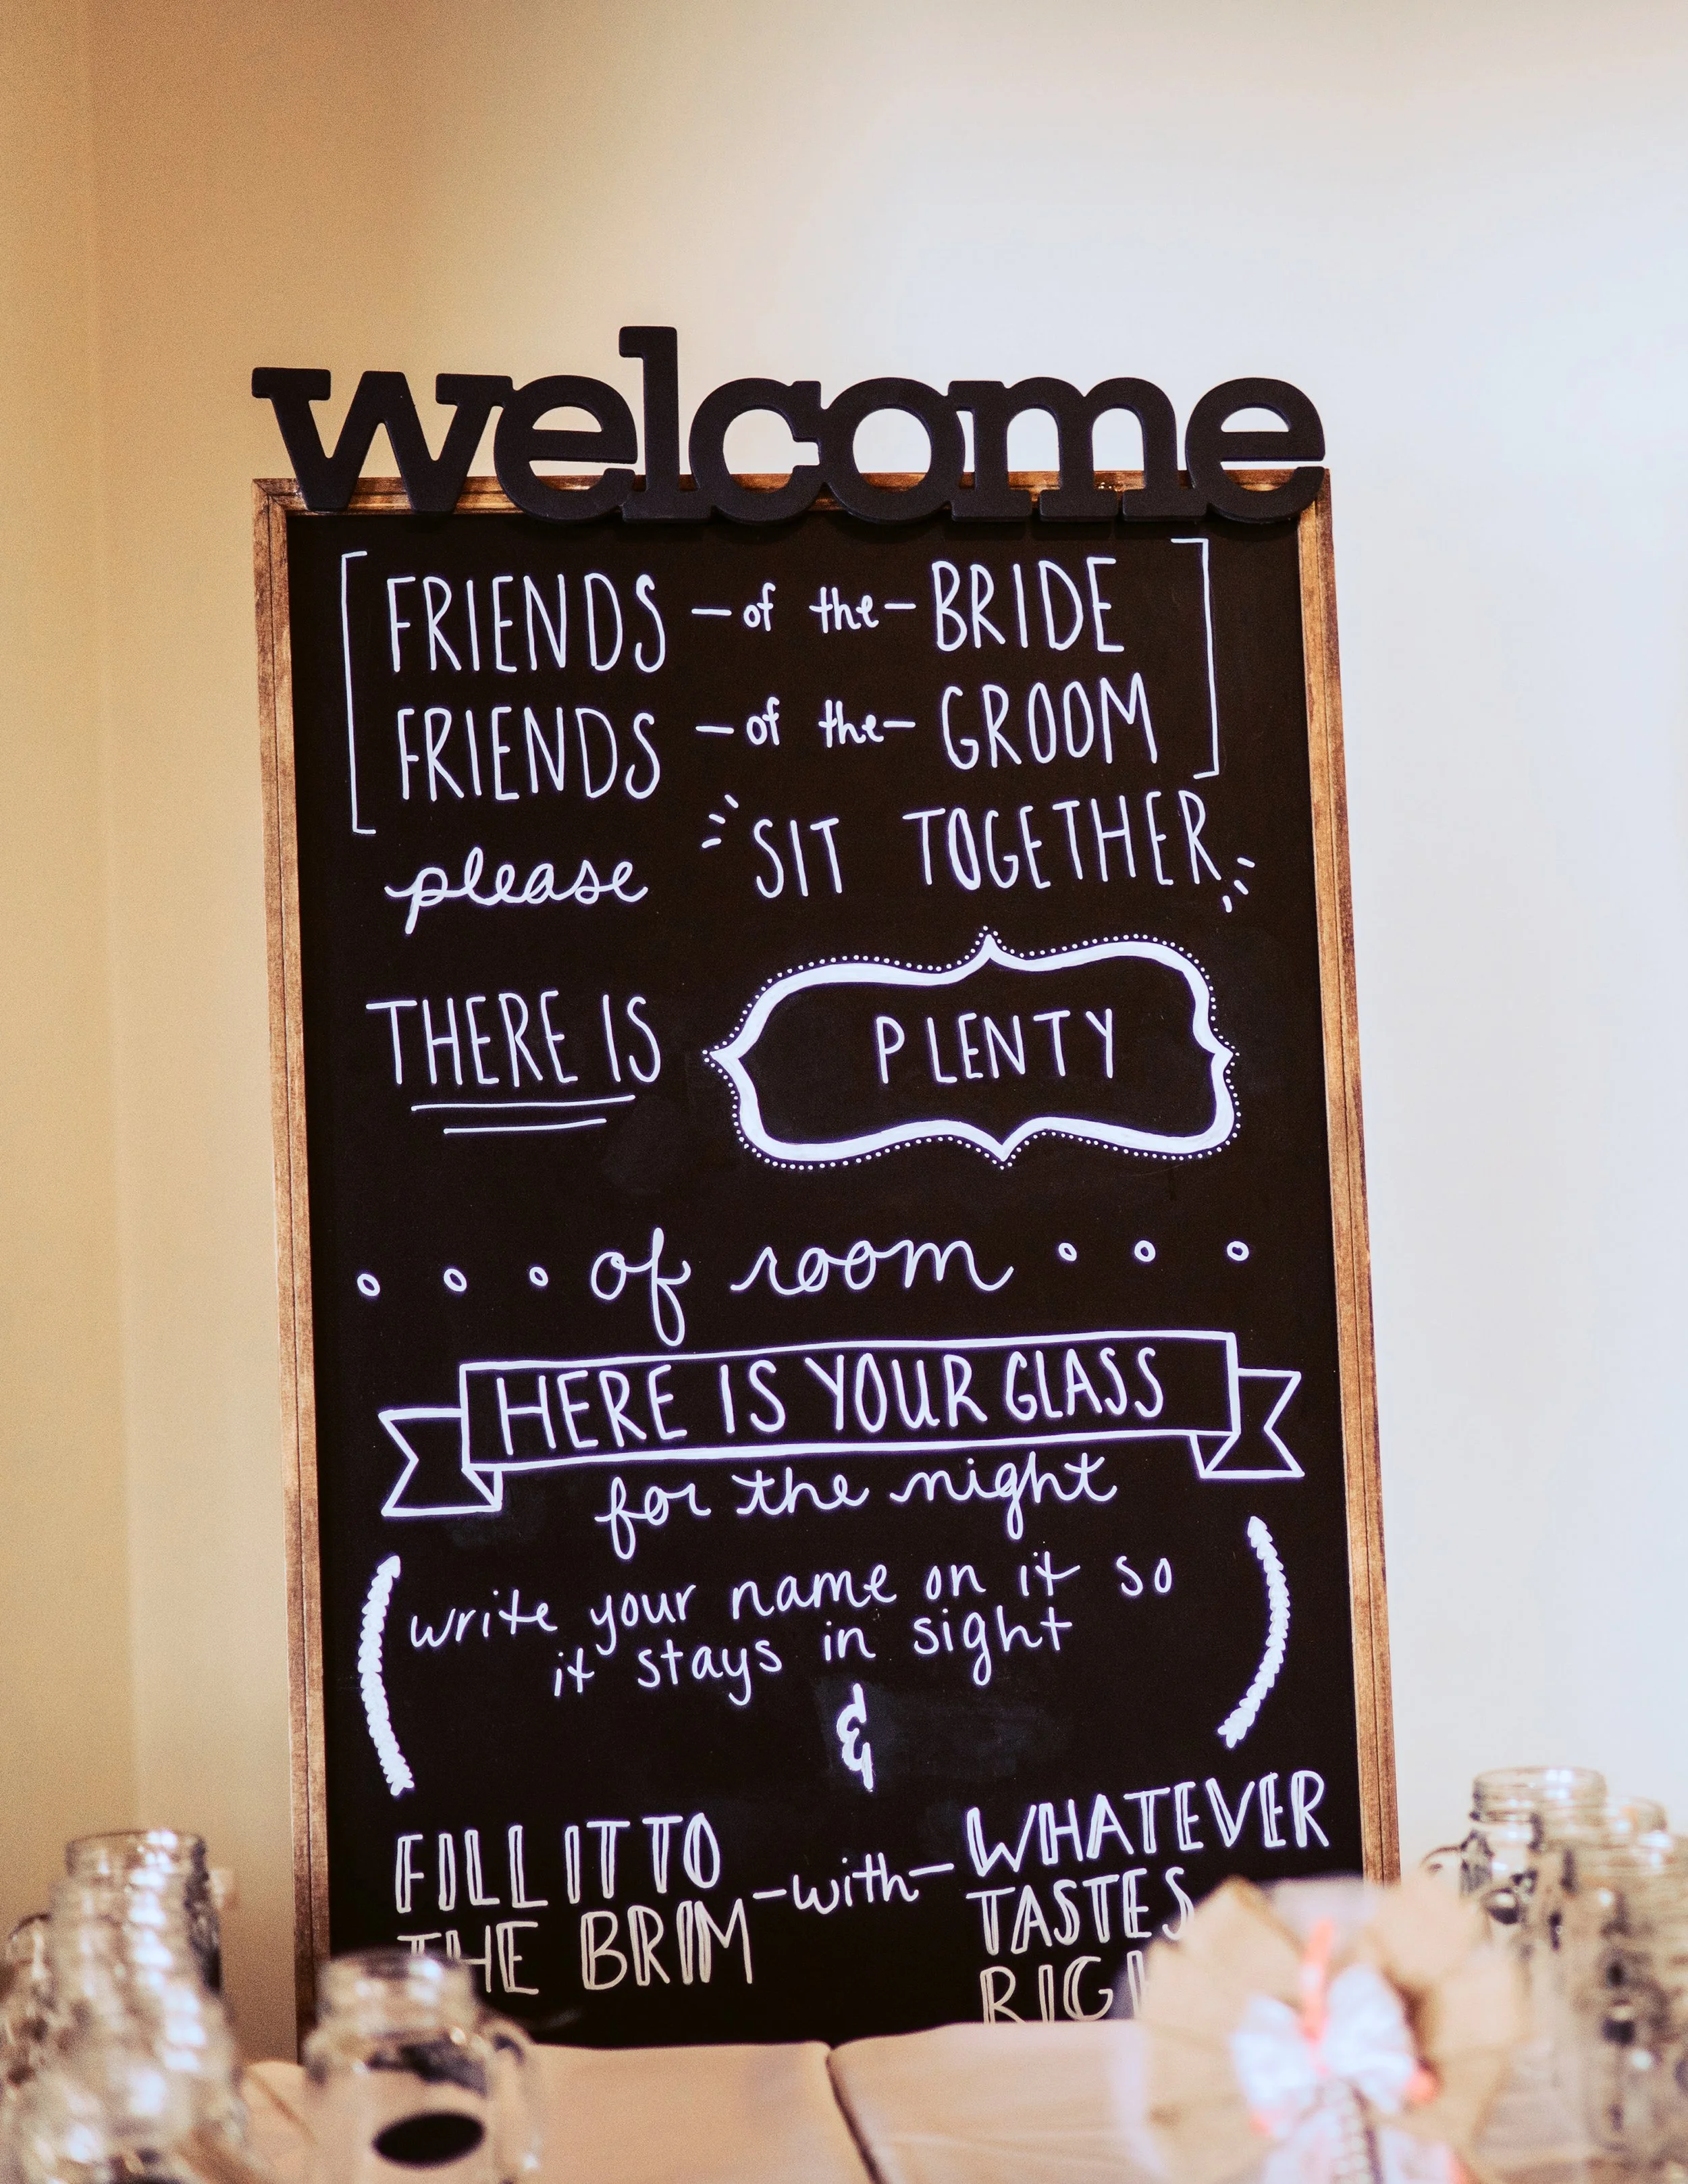 welcome
FRIENDS -of the- BRIDE
FRIENDS -of the- GROOM
please SIT TOGETHER
THERE IS PLENTY
of room
HERE IS YOUR GLASS
for the night
write your name on it so
it stays in sight
&
FILL IT TO -with- WHATEVER
THE BRIM TASTES